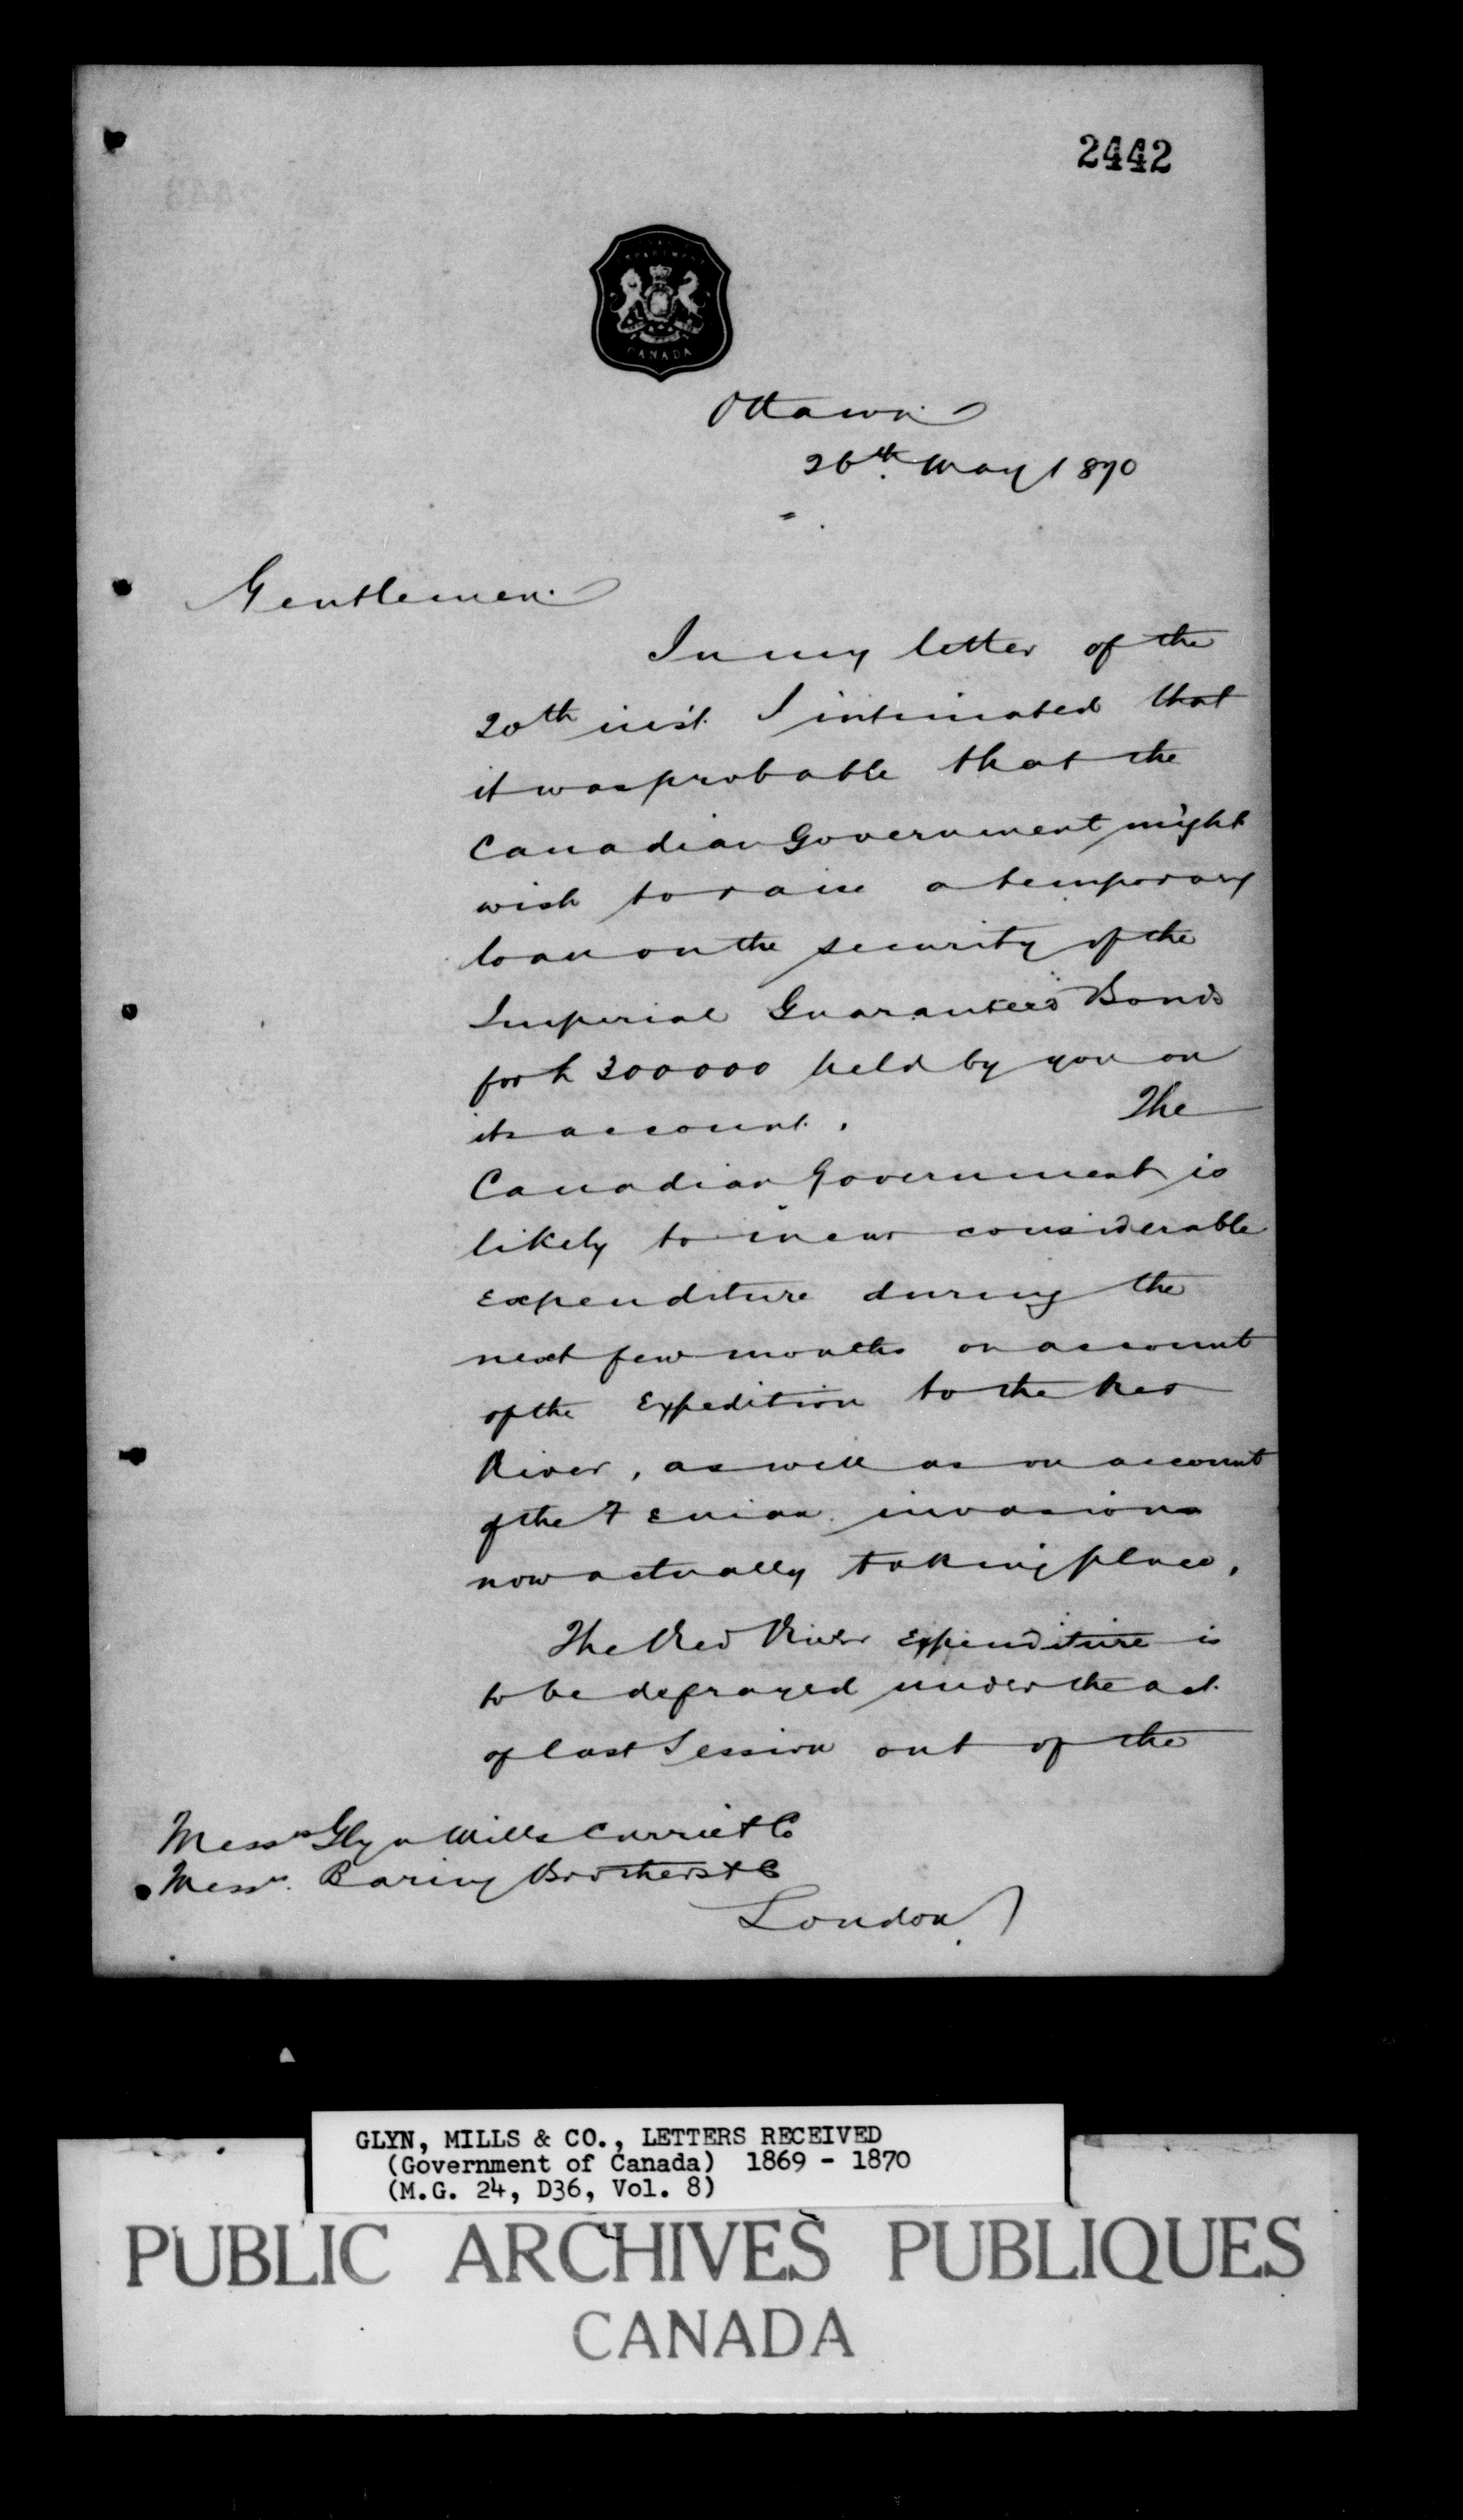 2442
CANADA
Ottawa
26th May 1870
Gentlemen.
In my letter of the
20th inst. I intimated that
it was probable that the
Canadian Government might
wish to raise a temporary
loan on the security of the
Imperial Guaranteed Bonds
for £ 300000 held by you on
its account. The
Canadian Government is
likely to incur considerable
expenditure during the
next few months on account
of the Expedition to the Red
River, as well as on account
of the Fenian invasions
now actually taking place.
The Red River expenditure is
to be defrayed under the act
of last Session out of the
Messrs Glyn Mills Currie & Co
Messrs. Baring Brothers & Co
London
GLYN, MILLS & CO., LETTERS RECEIVED
(Government of Canada) 1869 - 1870
(M.G. 24, D36, Vol. 8)
PUBLIC ARCHIVES PUBLIQUES
CANADA